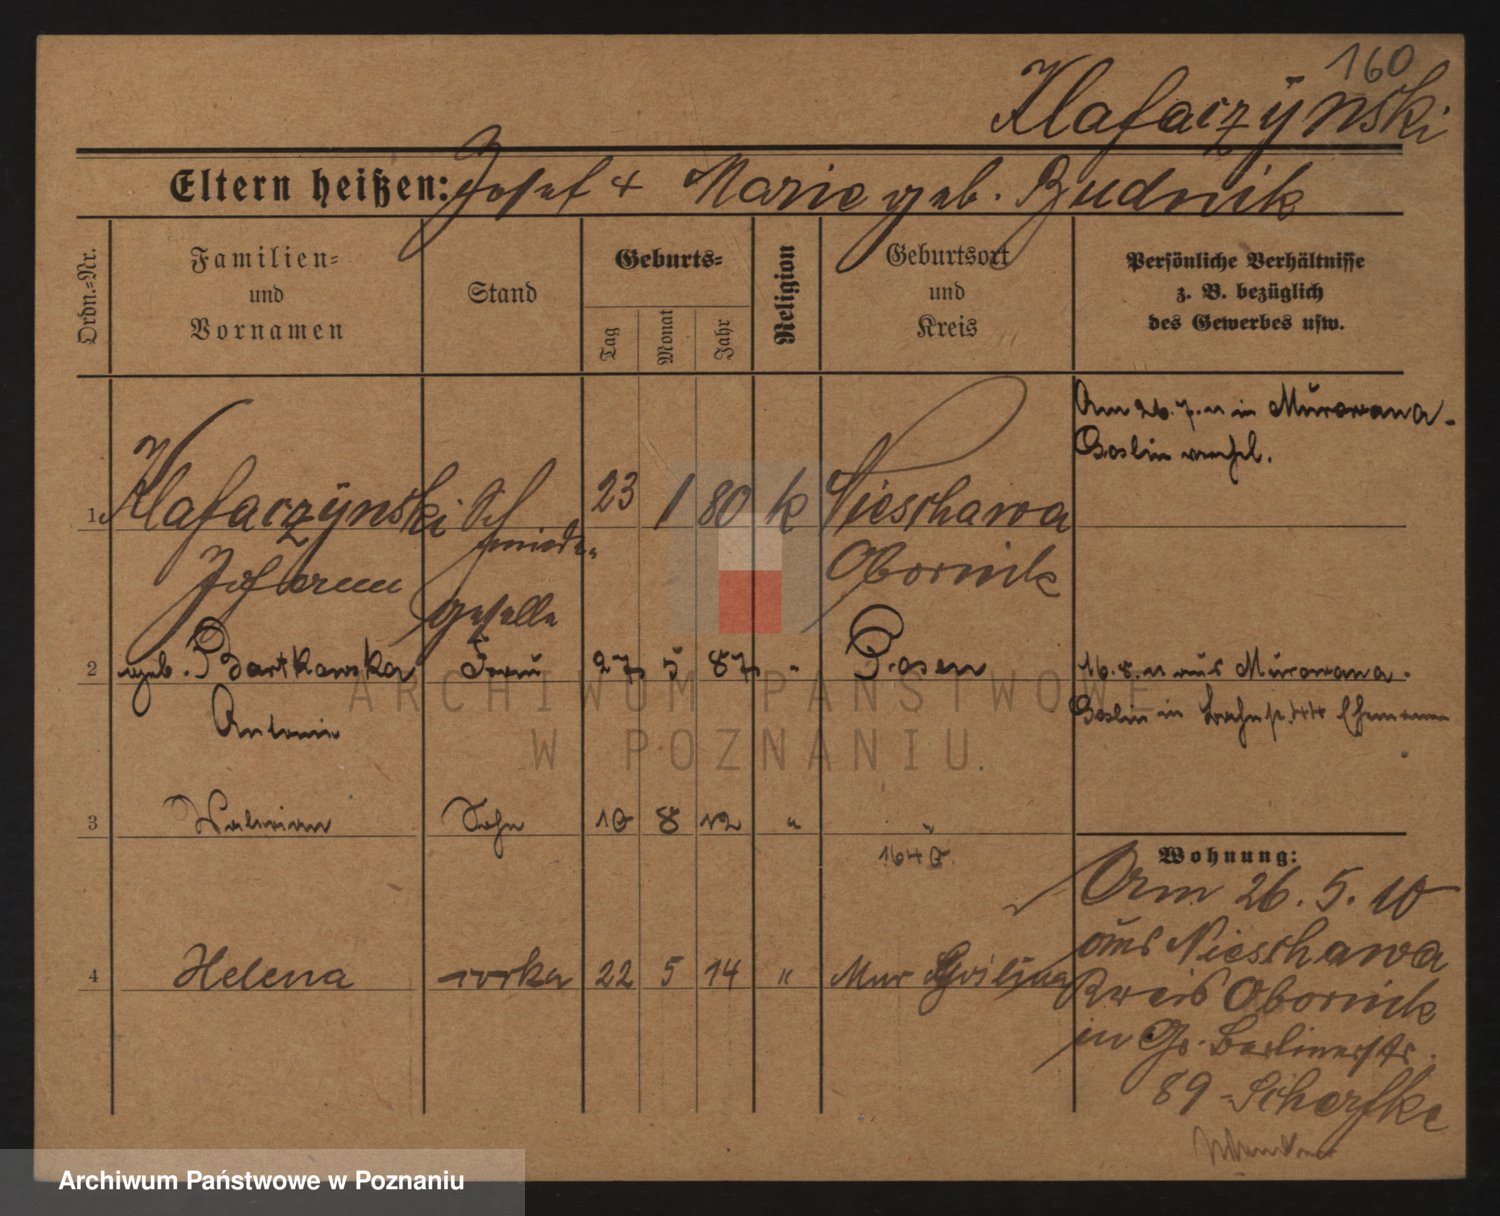 160
Klafaczÿnski
Eltern heißen: Josef + Marie geb. Budnik
Ordn.-Nr.
Familien-
und
Vornamen
Stand
Geburts-
Tag
Monat
Jahr
Religion
Geburtsort
und
Kreis
Persönliche Verhältnisse
z. B. bezüglich
des Gewerbes usw.
Am 26.7.11 in Murowana-
Goslin verehel.
1 Klafaczÿnski Schmiede- 23 1 80 k Nieschawa
Johann geselle Obornik
2 geb. Bartkowska Frau 27 5 87 " Posen
16.8.11 aus Murowana-
Antonie
Goslin in
3 Walerian Sohn 10 8 12 " "
1640.
Wohnung:
Am 26.5.10
aus Nieschawa
4 Helena córka 22 5 14 " Mur Goślina
Kreis Obornik
in Gr. Berlinerstr.
89 - Scherfke
ARCHIWUM PAŃSTWOWE
W POZNANIU
Archiwum Państwowe w Poznaniu